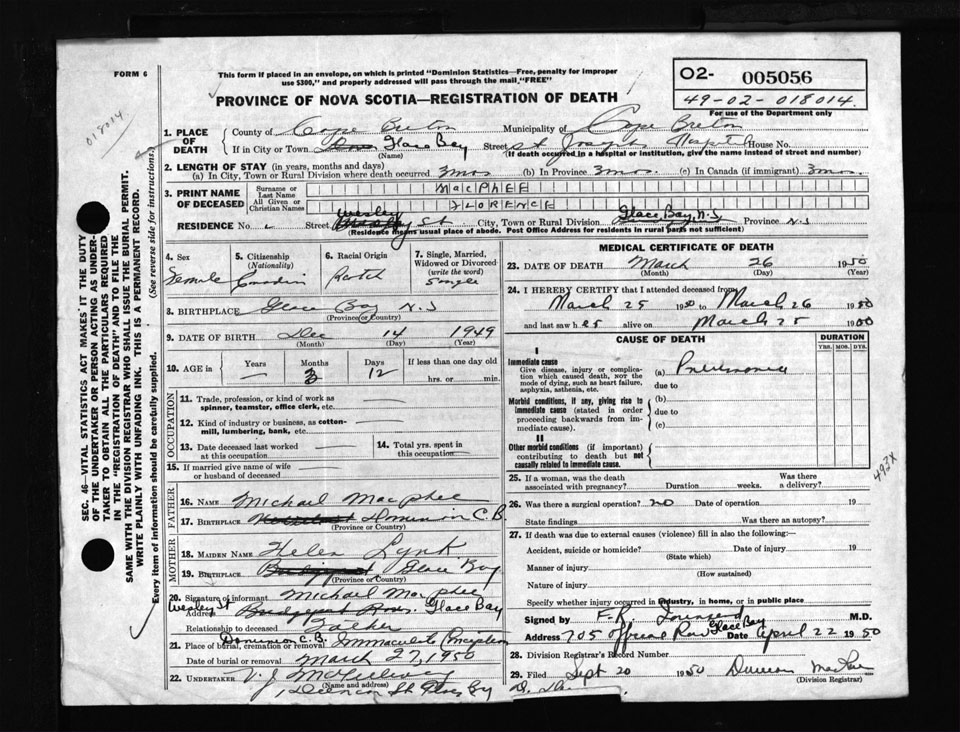 FORM 6
This form if placed in an envelope, on which is printed "Dominion Statistics—Free, penalty for improper use $300," and properly addressed will pass through the mail, "FREE"
PROVINCE OF NOVA SCOTIA—REGISTRATION OF DEATH
O2- 005056
49-02-018014
For use of the Department only
018014
1. PLACE OF DEATH
County of Cape Breton Municipality of Cape Breton
If in City or Town Glace Bay Street St Josephs Hospital House No.
(Name) (If death occurred in a hospital or institution, give the name instead of street and number)
2. LENGTH OF STAY (in years, months and days)
(a) In City, Town or Rural Division where death occurred 3 mos (b) In Province 3 mos. (c) In Canada (if immigrant) 3 mos.
3. PRINT NAME OF DECEASED
Surname or Last Name MACPHEE
All Given or Christian Names FLORENCE
RESIDENCE No. Street Wesley St City, Town or Rural Division Glace Bay, N.S Province N.S
(Residence means usual place of abode. Post Office Address for residents in rural parts not sufficient)
4. Sex Female
5. Citizenship (Nationality)
6. Racial Origin
7. Single, Married, Widowed or Divorced (write the word) Single
8. BIRTHPLACE Glace Bay N.S
(Province or Country)
9. DATE OF BIRTH Dec 14 1949
(Month) (Day) (Year)
10. AGE in Years — Months 3 Days 12 If less than one day old hrs. or min.
OCCUPATION
11. Trade, profession, or kind of work as spinner, teamster, office clerk, etc.
12. Kind of industry or business, as cotton-mill, lumbering, bank, etc.
13. Date deceased last worked at this occupation
14. Total yrs. spent in this occupation
15. If married give name of wife or husband of deceased
FATHER
16. NAME Michael Macphee
17. BIRTHPLACE Dominion C.B.
(Province or Country)
MOTHER
18. MAIDEN NAME Helen Lynk
19. BIRTHPLACE Glace Bay
(Province or Country)
20. Signature of informant Michael Macphee
Wesley St Address Glace Bay
Relationship to deceased Father
21. Place of burial, cremation or removal Dominion C.B. Immaculate Conception
Date of burial or removal March 27, 1950
22. UNDERTAKER V. J.
(Name and address)
St Glace Bay
MEDICAL CERTIFICATE OF DEATH
23. DATE OF DEATH March 26 1950
(Month) (Day) (Year)
24. I HEREBY CERTIFY that I attended deceased from
March 25 1950 to March 26 1950
and last saw h alive on March 25 19
CAUSE OF DEATH
DURATION
YRS. MOS. DYS.
I
Immediate cause
Give disease, injury or complication which caused death, not the mode of dying, such as heart failure, asphyxia, asthenia, etc.
(a) Pneumonia
due to
Morbid conditions, if any, giving rise to immediate cause (stated in order proceeding backwards from immediate cause).
(b)
due to
(c)
II
Other morbid conditions (if important) contributing to death but not causally related to immediate cause.
493X
25. If a woman, was the death associated with pregnancy? Duration weeks. Was there a delivery?
26. Was there a surgical operation? no Date of operation 19
State findings Was there an autopsy?
27. If death was due to external causes (violence) fill in also the following:—
Accident, suicide or homicide? Date of injury 19
(State which)
Manner of injury
(How sustained)
Nature of injury
Specify whether injury occurred in industry, in home, or in public place
Signed by F. R. Townsend M.D.
Address 705 Row Glace Bay Date April 22 1950
28. Division Registrar's Record Number
29. Filed Sept 20 1950 Duncan
(Division Registrar)
SEC. 46—VITAL STATISTICS ACT MAKES IT THE DUTY OF THE UNDERTAKER OR PERSON ACTING AS UNDERTAKER TO OBTAIN ALL THE PARTICULARS REQUIRED IN THE "REGISTRATION OF DEATH" AND TO FILE THE SAME WITH THE DIVISION REGISTRAR WHO SHALL ISSUE THE BURIAL PERMIT.
WRITE PLAINLY WITH UNFADING INK. THIS IS A PERMANENT RECORD.
Every item of information should be carefully supplied. (See reverse side for instructions.)